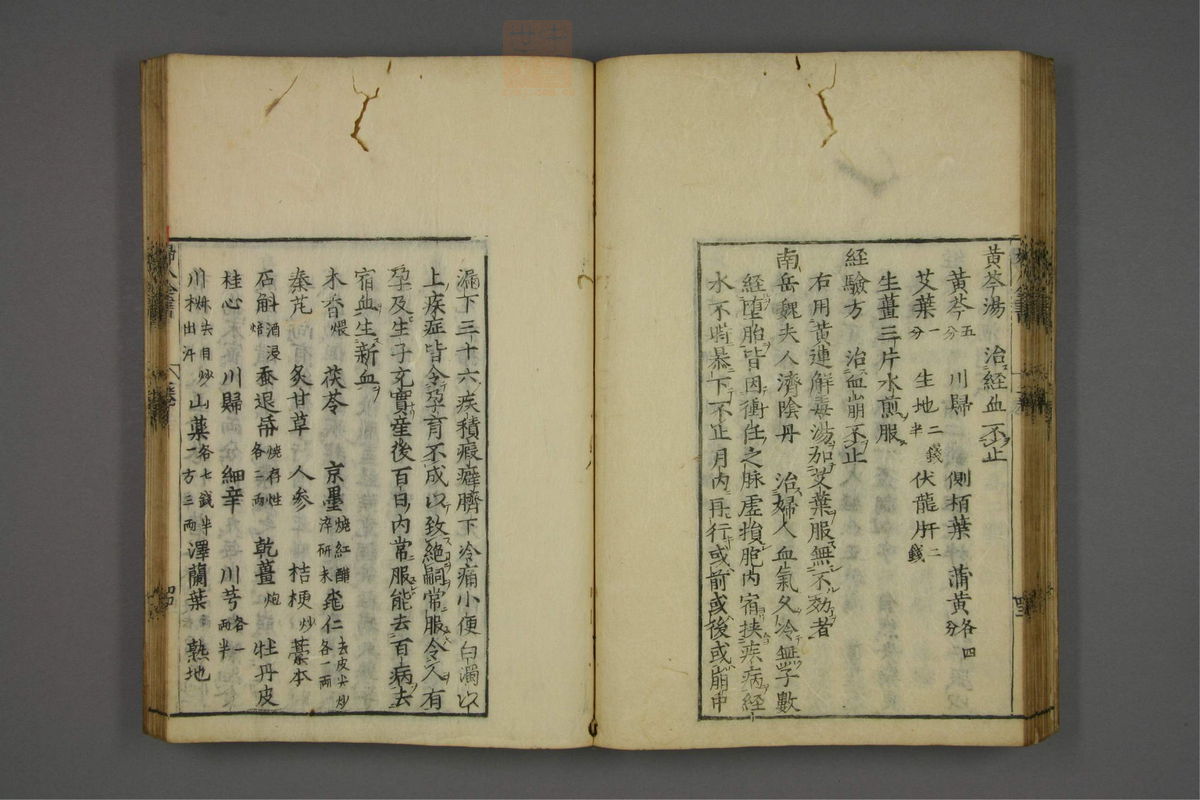 黄芩湯　治経血不止
黄芩五分　川歸　側栢葉　蒲黄各四分
艾葉一分　生地二錢半　伏龍肝二錢
生薑三片水煎服
経驗方　治血崩不止
右用黄連解毒湯加艾葉服無不効者
南岳魏夫人濟陰丹　治婦人血氣久冷無子數
経堕胎皆因衝任之脉虚損胞内宿挾疾病経
水不時暴下不止月内再行或前或後或崩中
漏下三十六疾積瘕癖臍下冷痛小便白濁以
上疾症皆令孕育不成以致絶嗣常服令人有
孕及生子充實産後百日内常服能去百病去
宿血生新血
木香煨　茯苓　京墨燒紅醋淬研末　桃仁去皮尖炒各一兩
秦芃　炙甘草　人参　桔梗炒　藁本
石斛酒浸焙　蚕退布燒存性各二兩　乾薑炮　牡丹皮
桂心　川歸　細辛　川芎各一兩半
川椒去目炒出汗　山藥各七錢半一方三兩　澤蘭葉　熟地
婦人全書